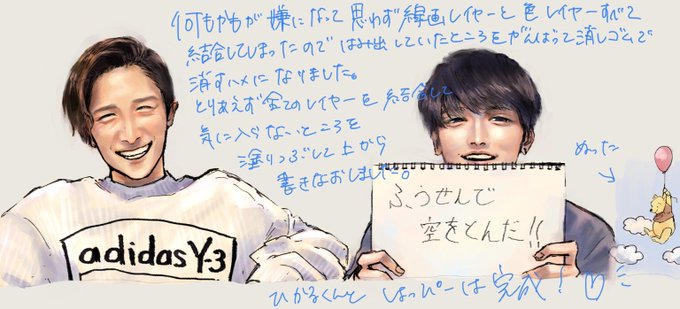 何もかもが嫌になって思わず線画レイヤーと色レイヤーすべて
結合してしまったのではみ出していたところをがんばって消しゴムで
消すハメになりました。
とりあえず全てのレイヤーを結合して
気に入らないところを
塗りつぶして上から
書きなおしました。
ぬった
ふうせんで
空をとんだ!!
adidas Y-3
ひかるくんと しょっぴーは完成!